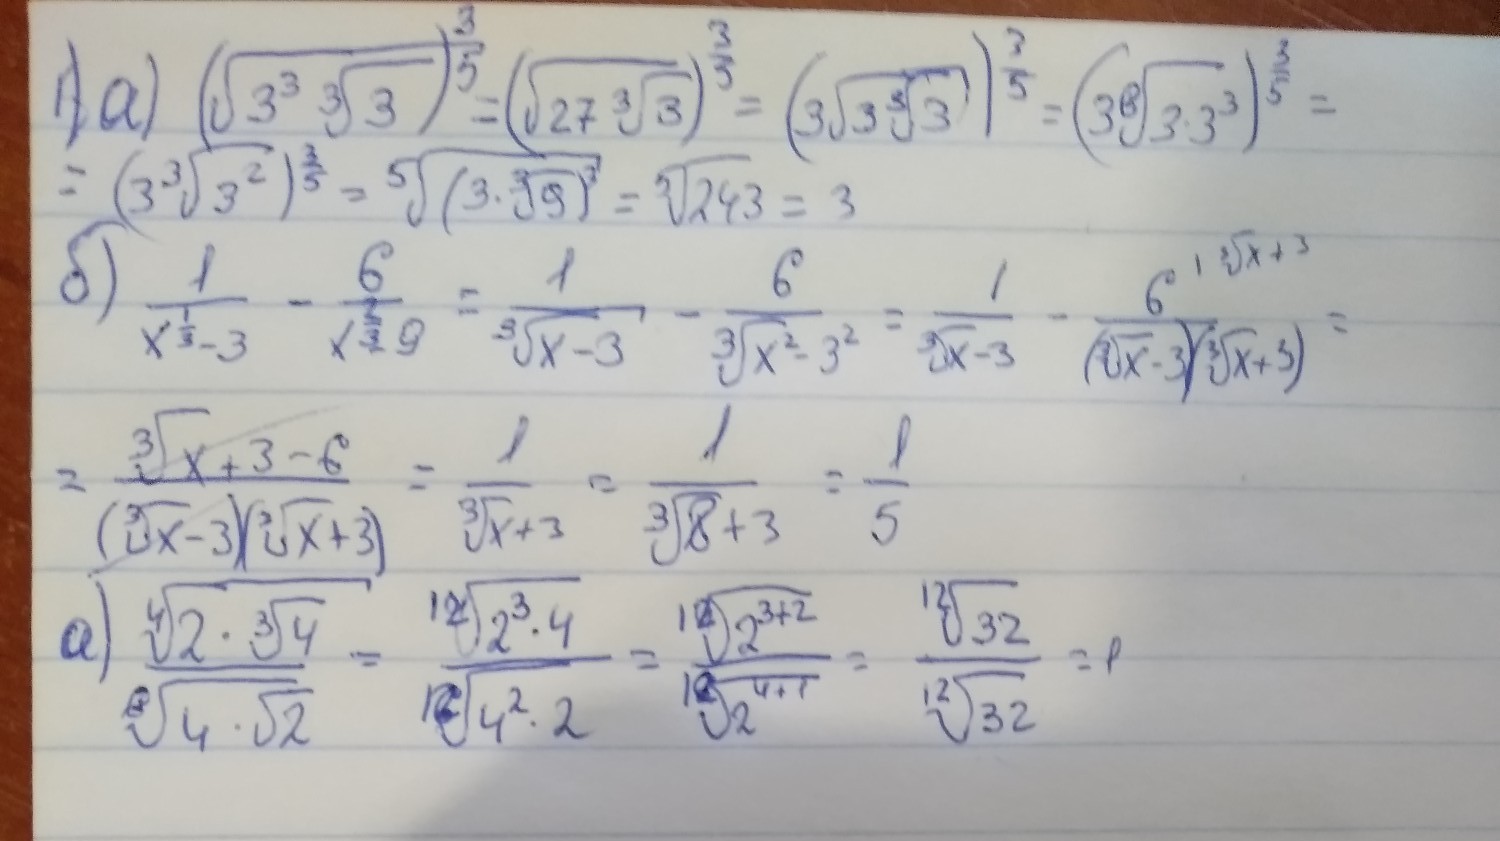 1) а) (√(3³ ∛3))^(3/5) = (√(27 ∛3))^(3/5) = (3√(3∛3))^(3/5) = (3 ⁶√(3·3³))^(3/5) =
= (3 ∛(3²))^(3/5) = ⁵√((3·∛9)³) = ⁵√243 = 3
б) 1/(x^(1/3) - 3) - 6/(x^(2/3) - 9) = 1/(∛x - 3) - 6/(∛x² - 3²) = 1/(∛x - 3) - 6/((∛x - 3)(∛x + 3)) = 1 ∛x + 3
= (∛x + 3 - 6)/((∛x - 3)(∛x + 3)) = 1/(∛x + 3) = 1/(∛8 + 3) = 1/5
а) ⁴√(2 · ∛4)/∛(4 · √2) = ¹²√(2³ · 4)/¹²√(4² · 2) = ¹²√(2^(3+2))/¹²√(2^(4+1)) = ¹²√32/¹²√32 = 1